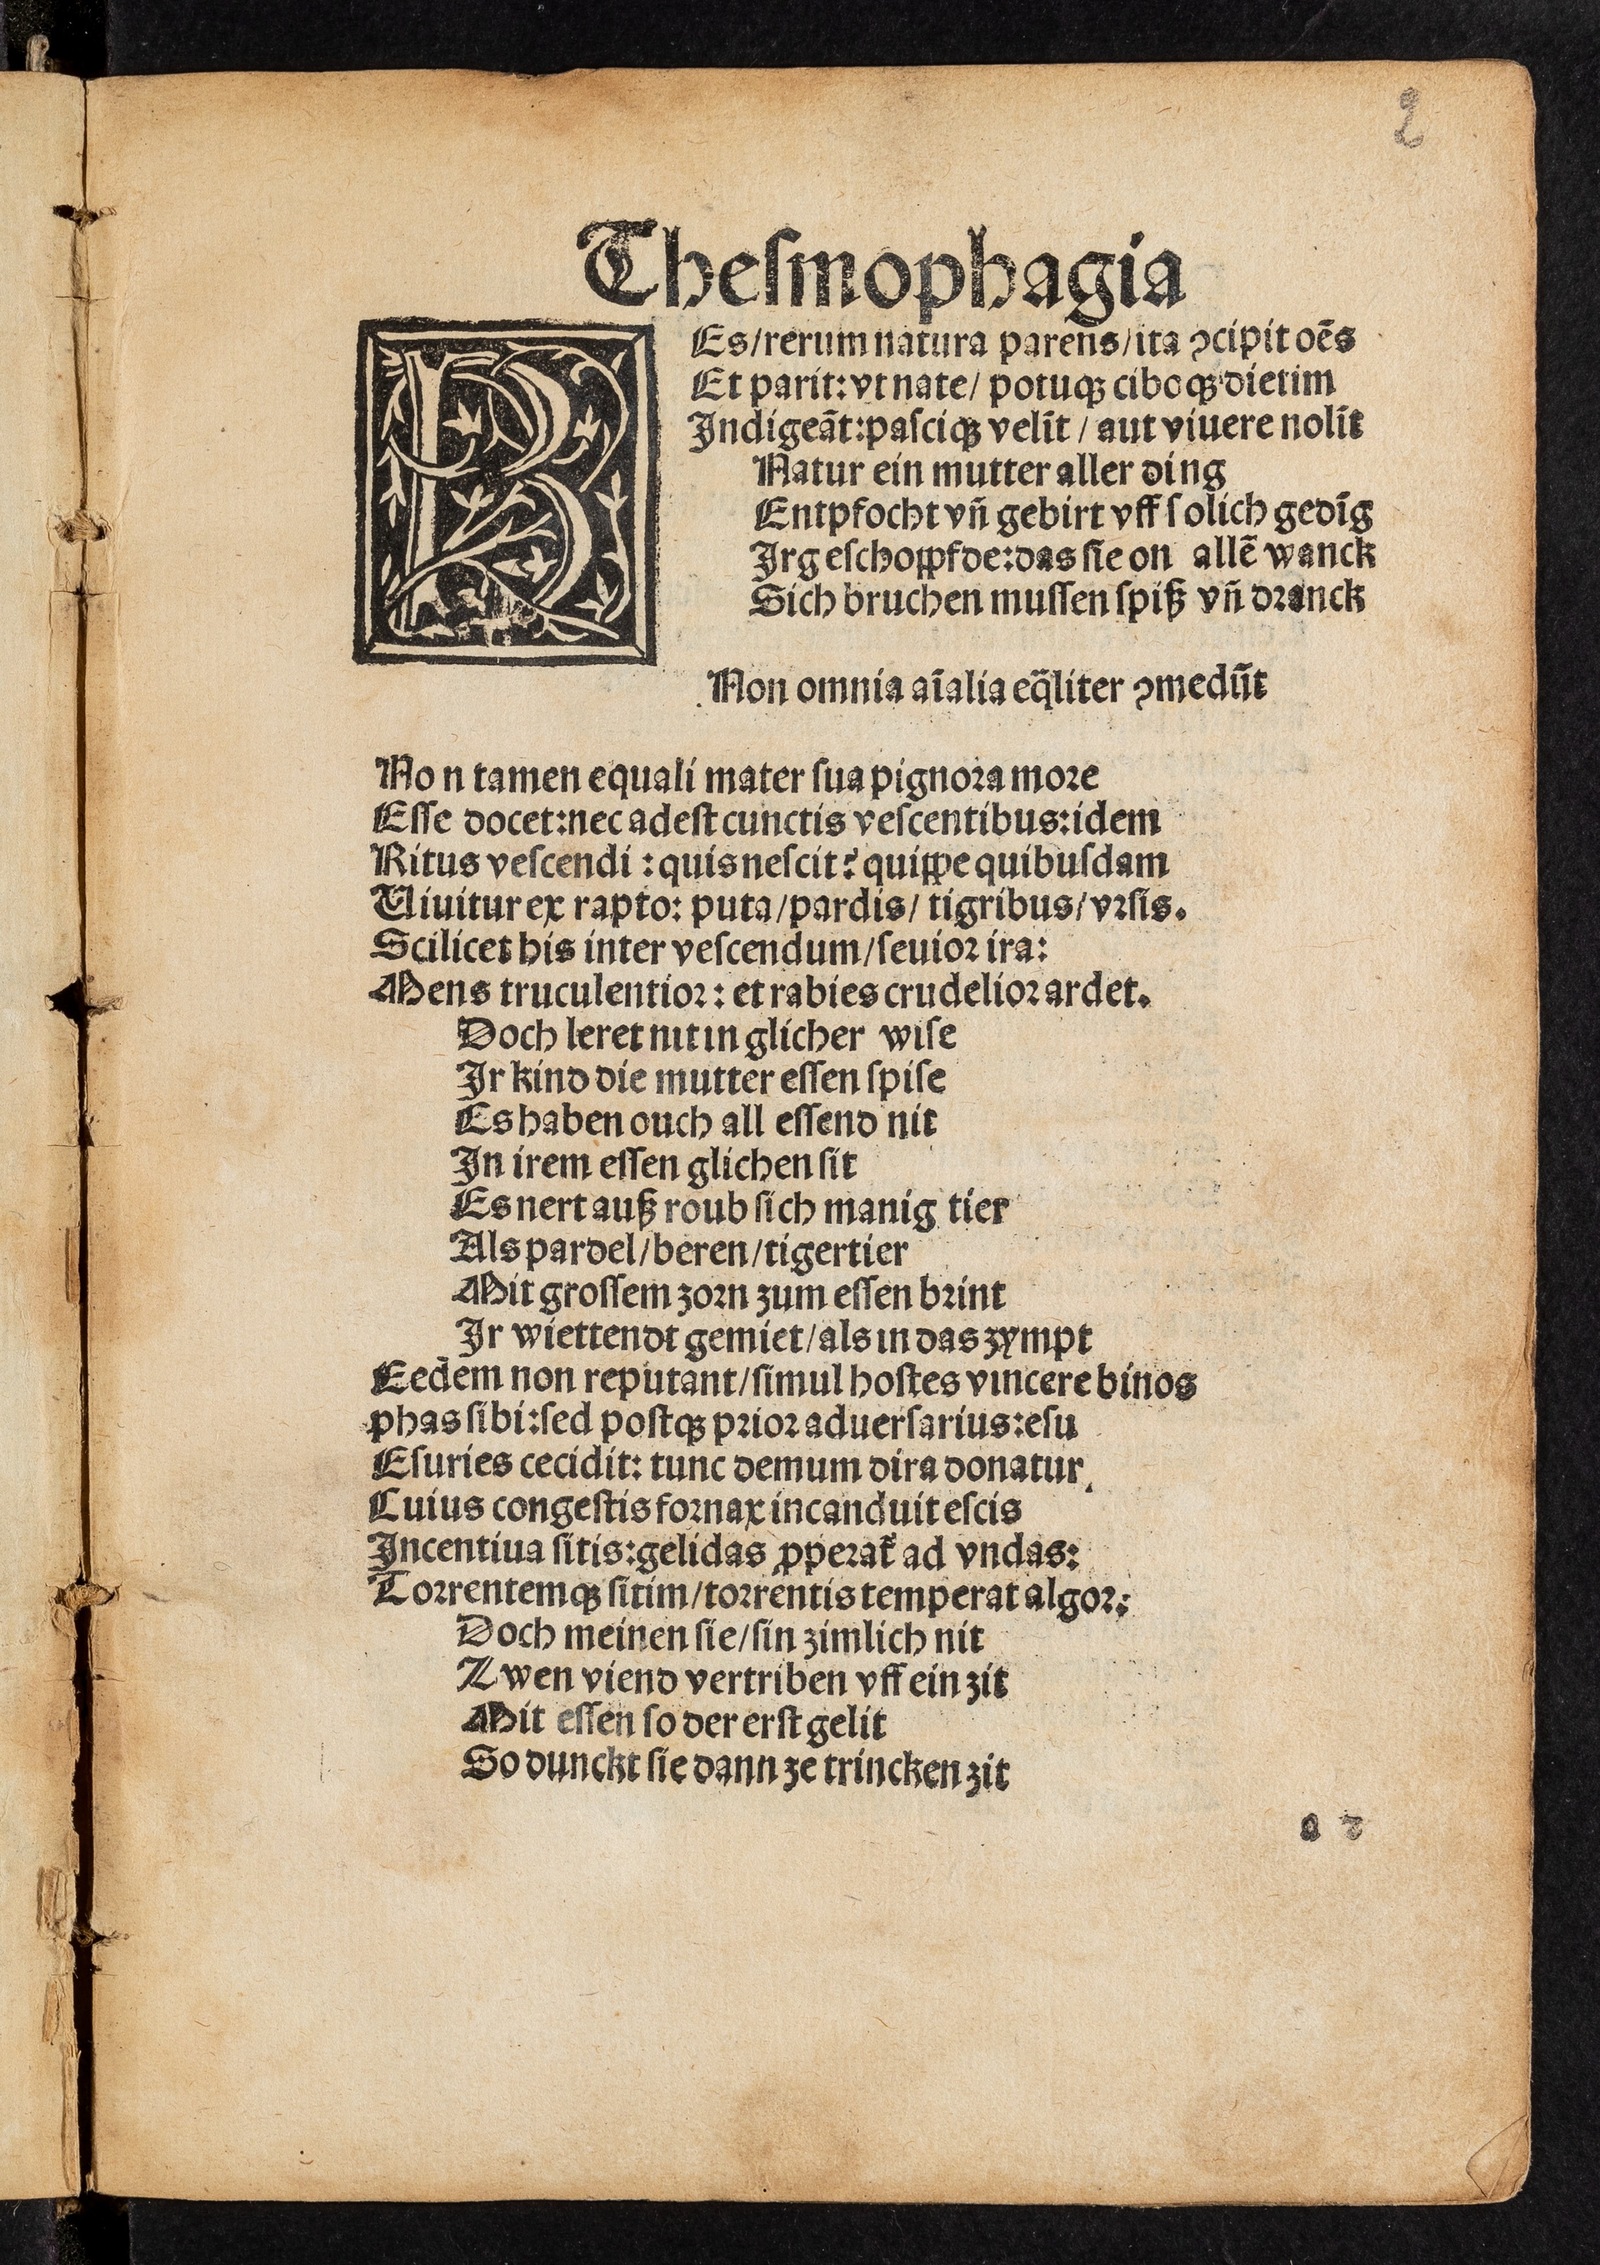 2
Theſmophagia
REs/rerum natura parens/ita ꝯcipit oēs
Et parit: vt nate/ potuqꝫ ciboqꝫ dietim
Indigeāt:paſciqꝫ velīt / aut viuere nolīt
Natur ein mutter aller ding
Entpfocht vñ gebirt vff ſolich gedīg
Irg eſchoppfde:das ſie on allē wanck
Sich bruchen muſſen ſpiß vñ dranck
Non omnia aīalia eq̄liter ꝯmedūt
No n tamen equali mater ſua pignora more
Eſſe docet:nec adeſt cunctis veſcentibus:idem
Ritus veſcendi : quis neſcit? quippe quibuſdam
Uiuitur ex rapto: puta/pardis/ tigribus/vrſis.
Scilicet his inter veſcendum/ſeuior ira:
Mens truculentior: et rabies crudelior ardet.
Doch leret nit in glicher wiſe
Ir kind die mutter eſſen ſpiſe
Es haben ouch all eſſend nit
In irem eſſen glichen ſit
Es nert auß roub ſich manig tier
Als pardel/beren/tigertier
Mit groſſem zorn zum eſſen brint
Ir wiettendt gemiet/als in das zympt
Eedēm non reputant/ſimul hoſtes vincere binos
phas ſibi:ſed poſtqꝫ prior aduerſarius:eſu
Eſuries cecidit: tunc demum dira donatur,
Cuius congeſtis fornax incanduit eſcis
Incentiua ſitis:gelidas ꝓperat᷑ ad vndas:
Torrentemqꝫ ſitim/torrentis temperat algor:
Doch meinen ſie/ſin zimlich nit
Zwen viend vertriben vff ein zit
Mit eſſen ſo der erſt gelit
So dunckt ſie dann ze trincken zit
a 2